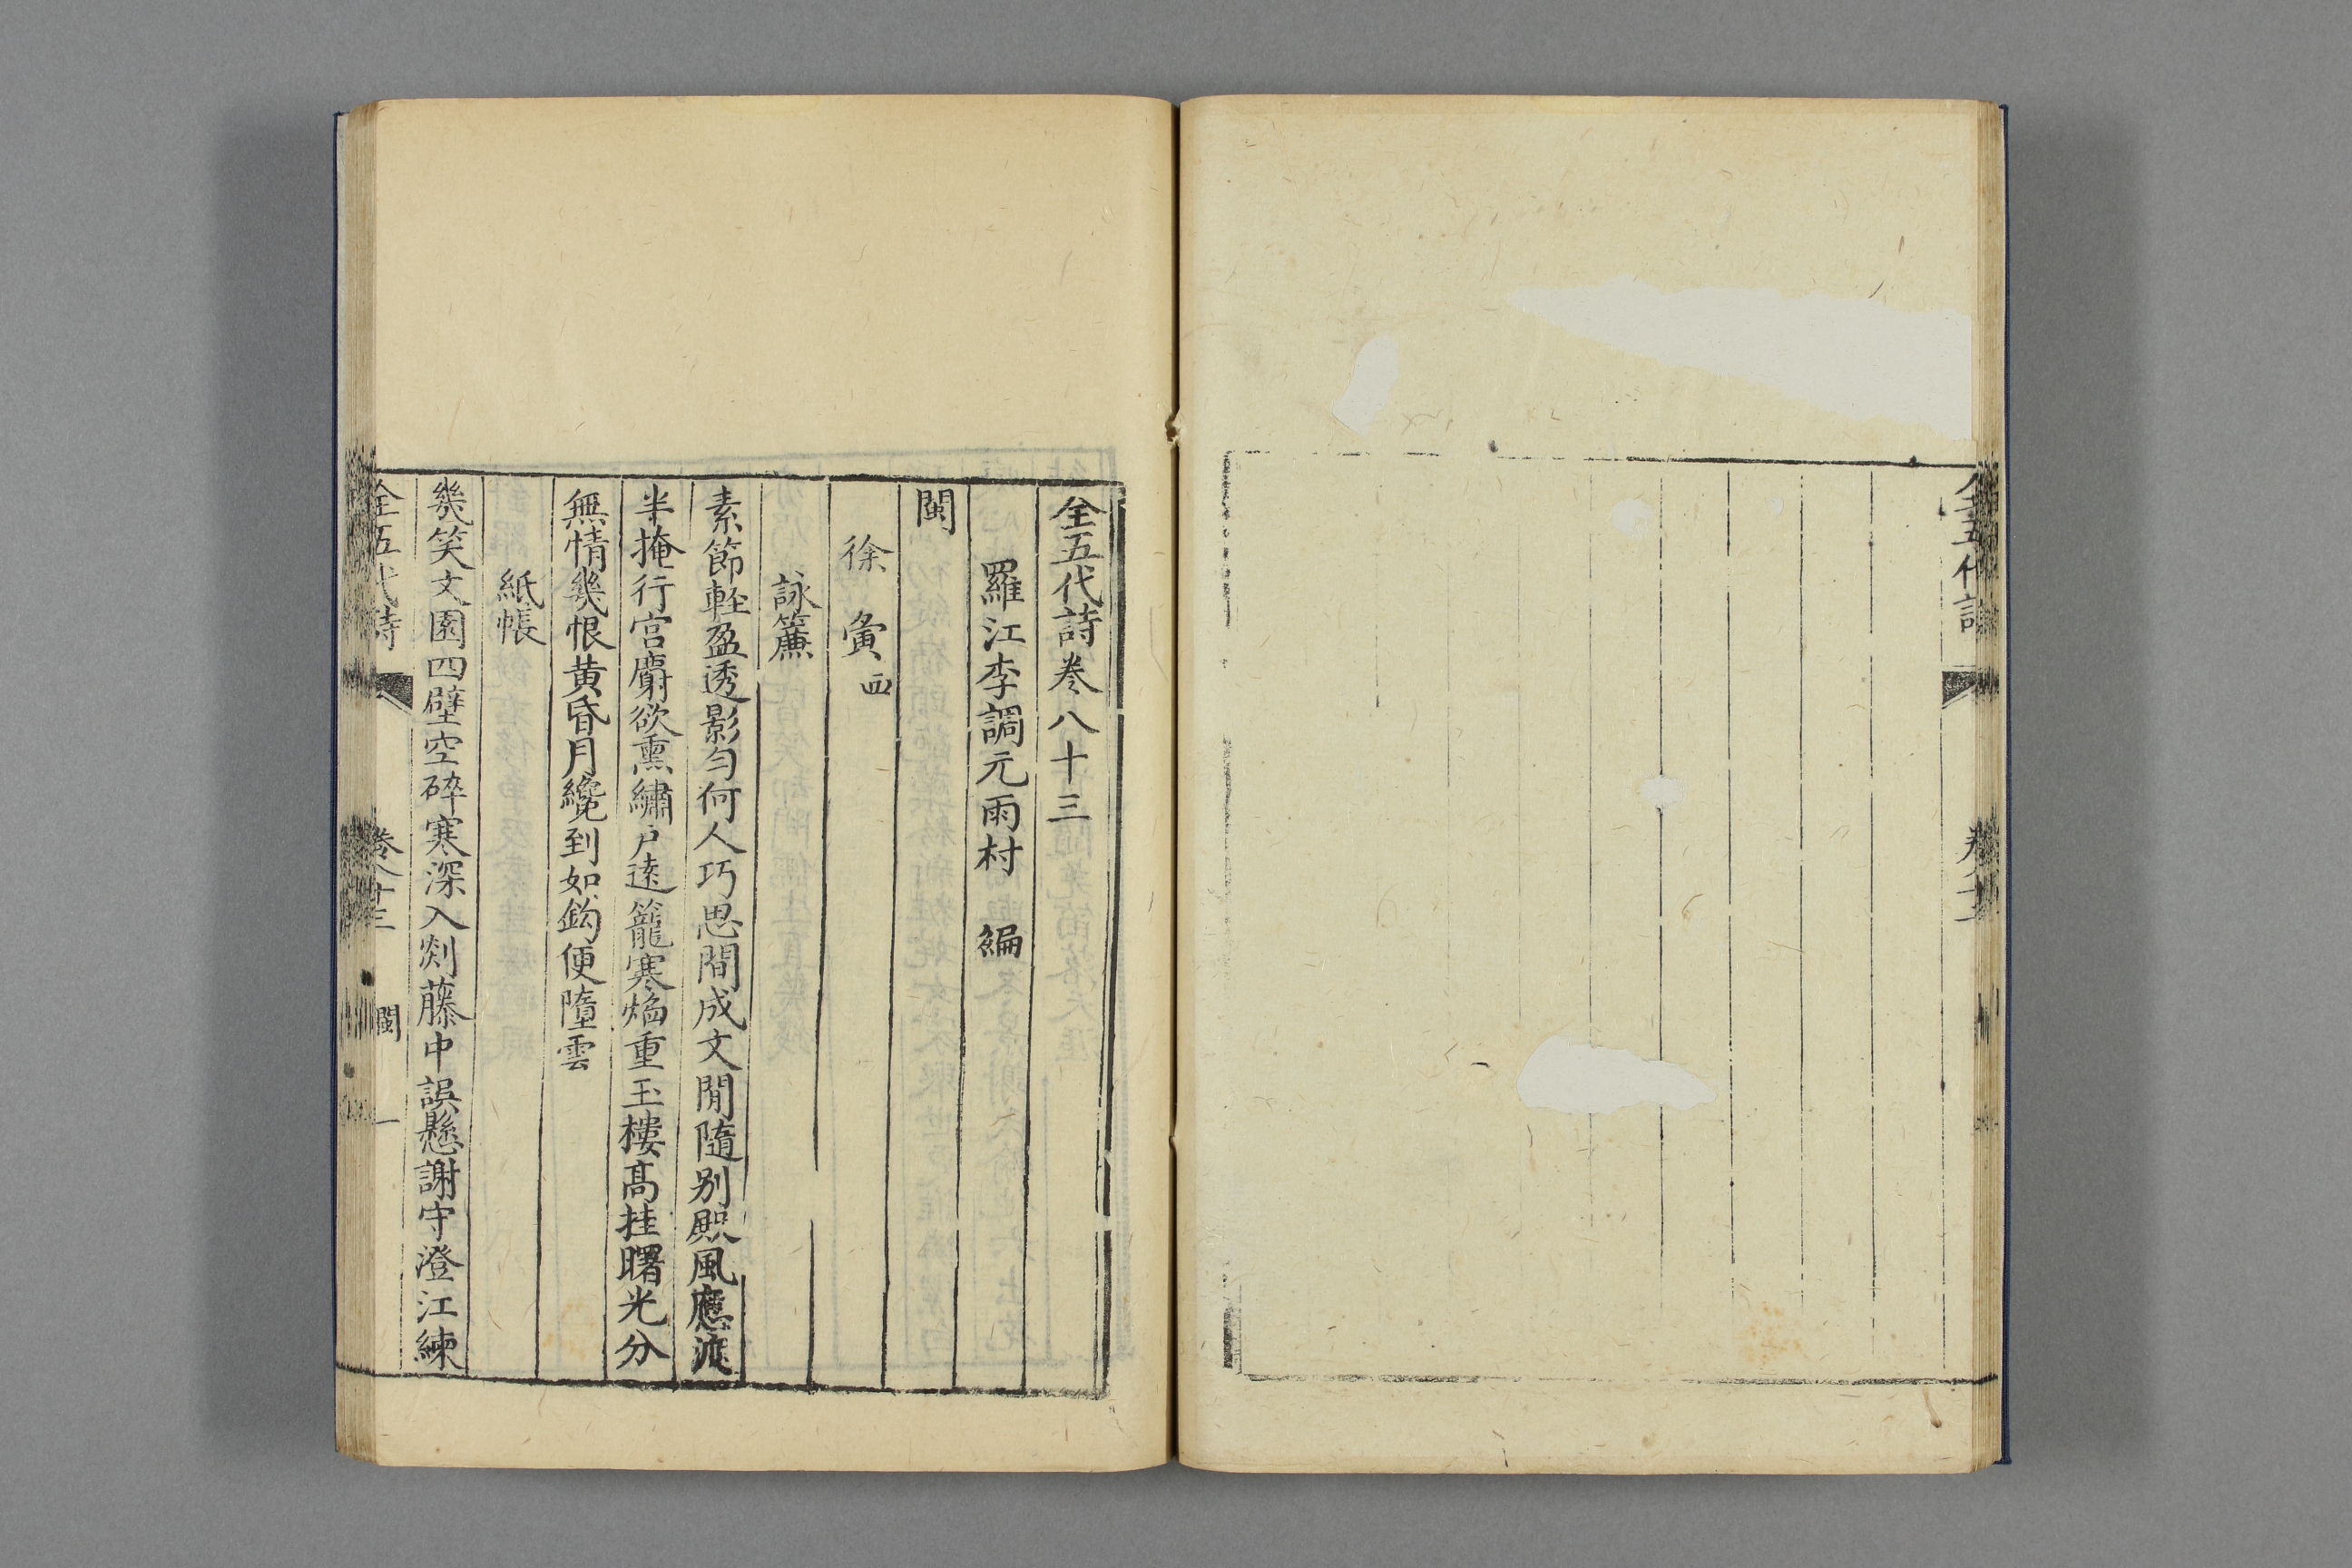 全五代詩卷八十三
羅江李調元雨村 編
閩
徐 夤 四
詠簾
素節輕盈透影勻何人巧思間成文閒隨別殿風應漉
半掩行宮麝欲熏繡戶遠籠寒焰重玉樓高挂曙光分
無情幾恨黃昏月纔到如鈎便墮雲
紙帳
幾笑文園四壁空碎寒深入剡藤中誤懸謝守澄江練
全五代詩 卷八十三 閩 一